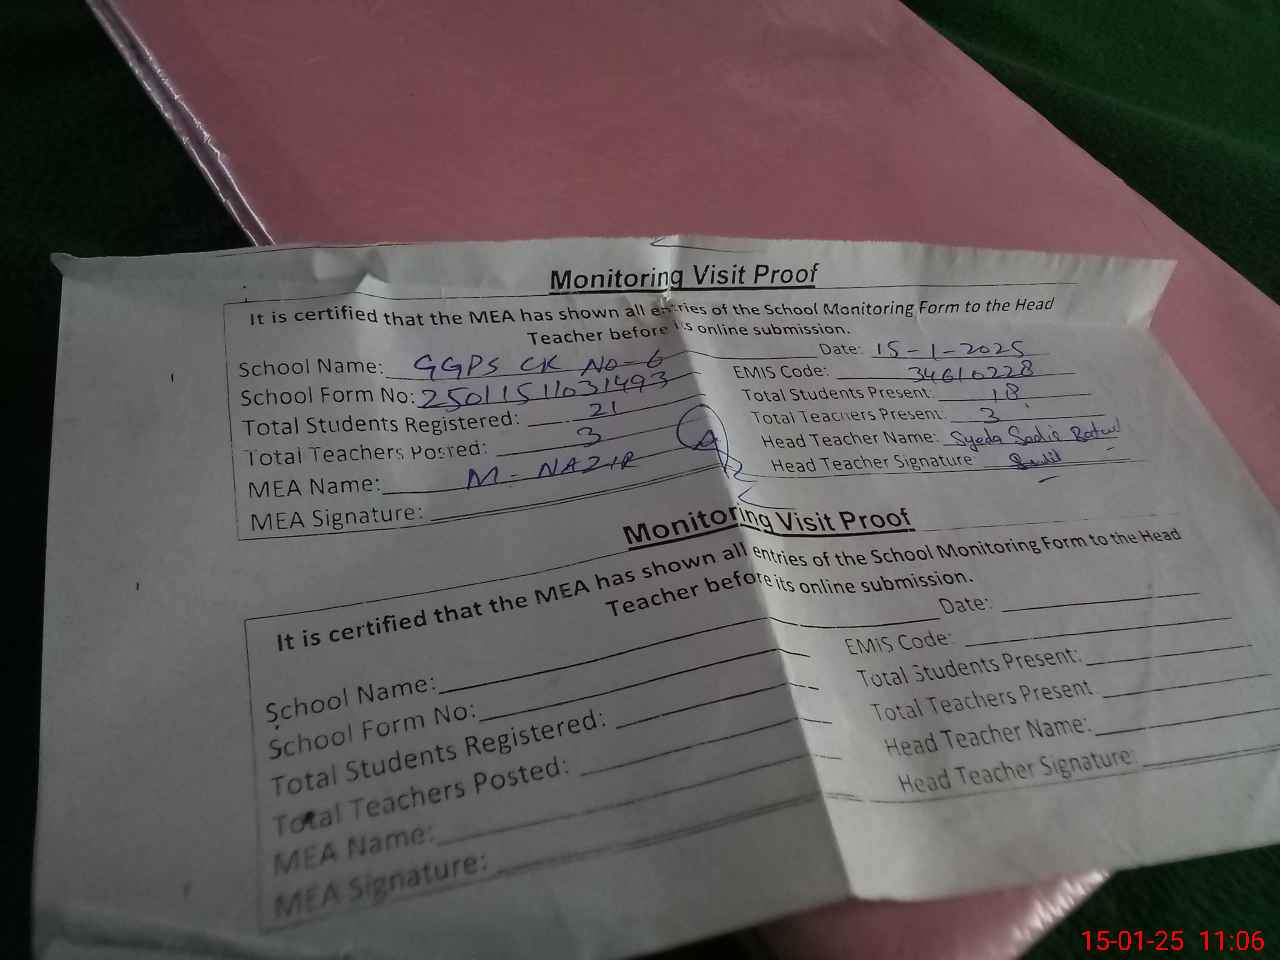 Monitoring Visit Proof
It is certified that the MEA has shown all entries of the School Monitoring Form to the Head
Teacher before its online submission.
School Name: GGPS CK No-6 Date: 15-1-2025
School Form No: 25011511031493 EMIS Code: 34610228
Total Students Registered: 21 Total Students Present: 18
Total Teachers Posted: 3 Total Teachers Present: 3
MEA Name: M-NAZIR Head Teacher Name: Syeda Sadia Batul
MEA Signature: Head Teacher Signature
Monitoring Visit Proof
It is certified that the MEA has shown all entries of the School Monitoring Form to the Head
Teacher before its online submission.
School Name: Date:
School Form No: EMIS Code:
Total Students Registered: Total Students Present:
Total Teachers Posted: Total Teachers Present
MEA Name: Head Teacher Name:
MEA Signature: Head Teacher Signature:
15-01-25 11:06